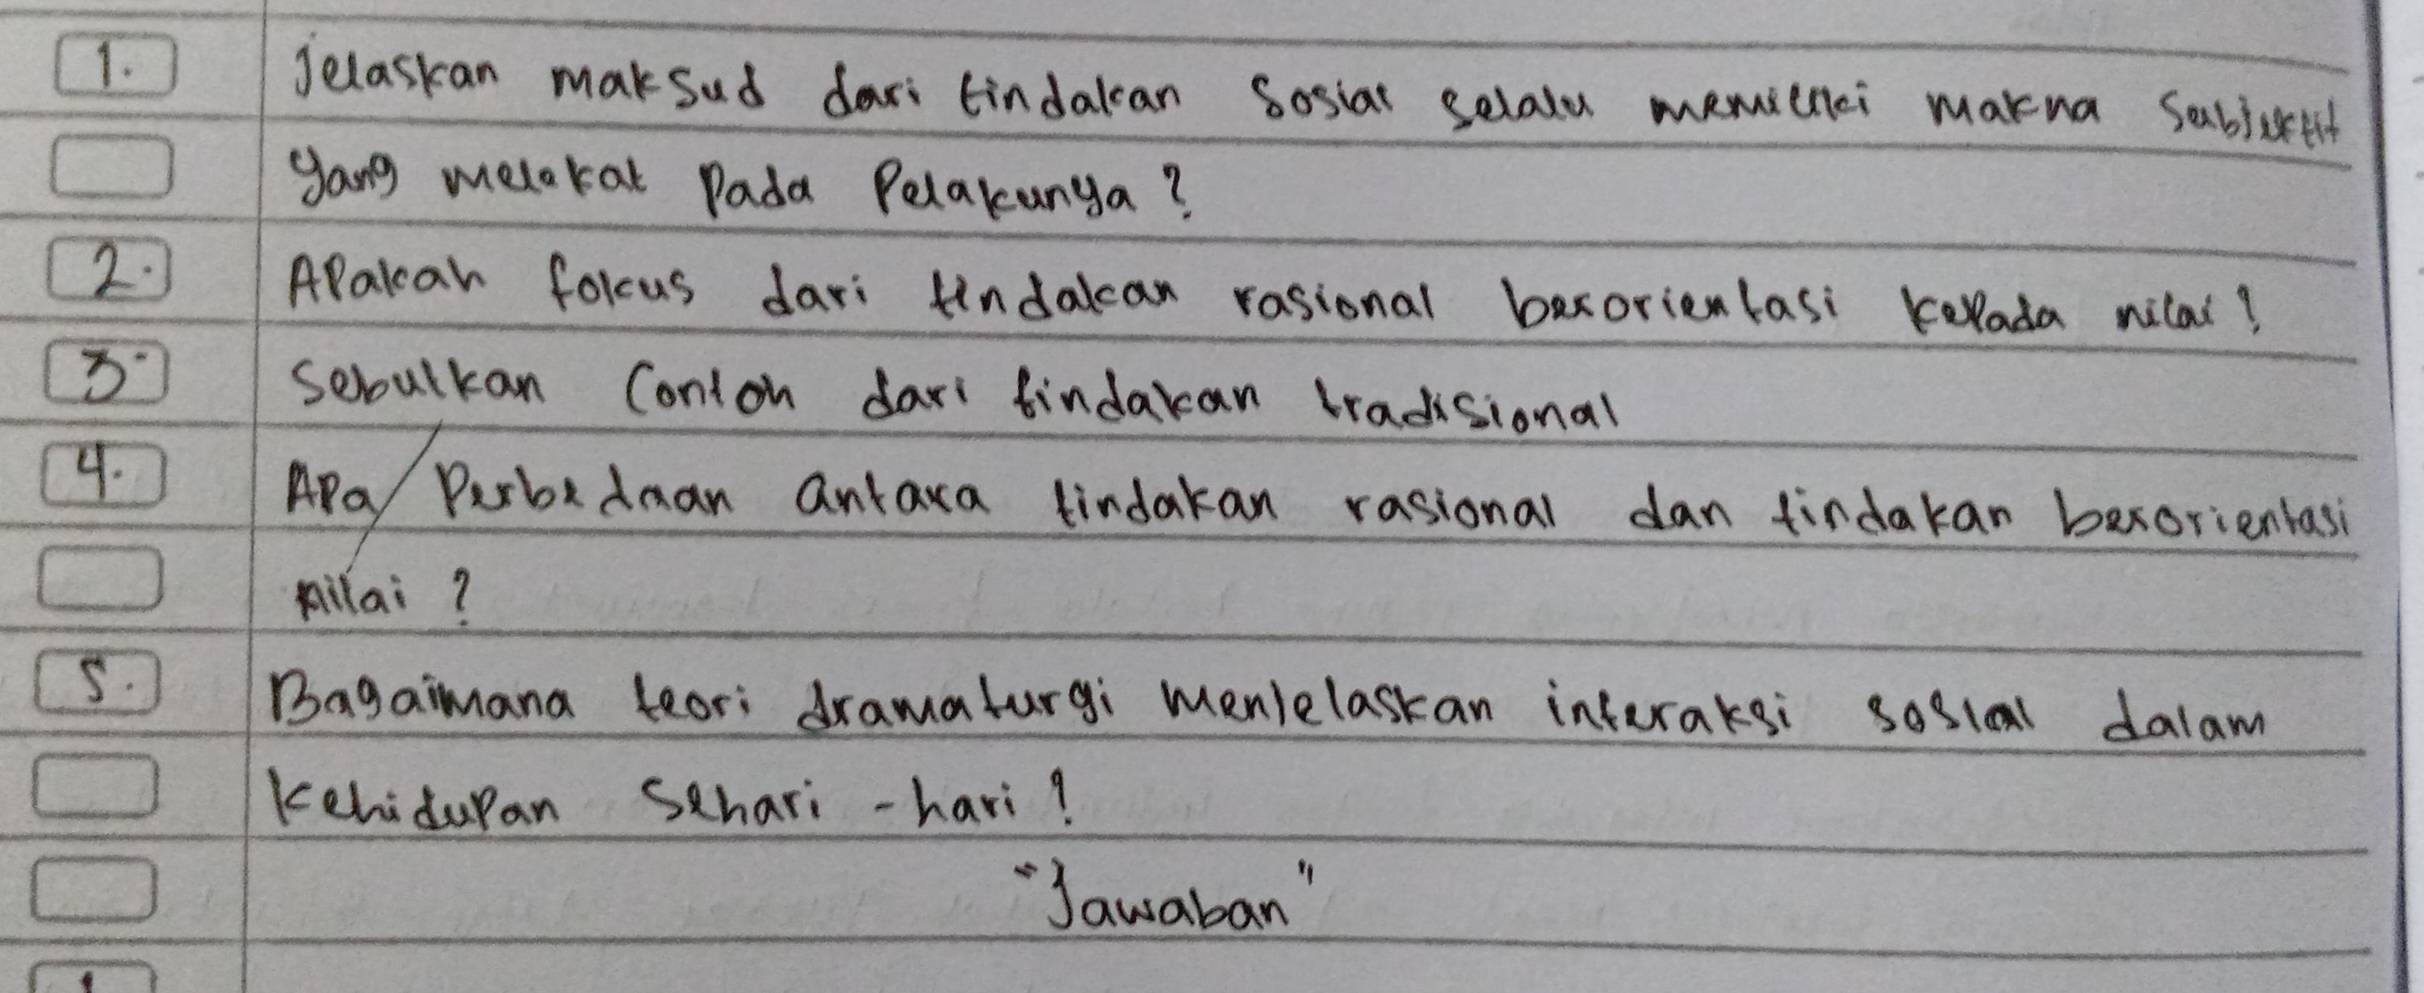 1. Jelaskan maksud dari tindakan sosial selalu memiliki makna subjektif
yang melekat pada pelakunya?
2. Apakah fokus dari tindakan rasional berorientasi kepada nilai?
3. Sebutkan contoh dari tindakan tradisional
4. Apa/perbedaan antara tindakan rasional dan tindakan berorientasi
nilai?
5. Bagaimana teori dramaturgi menjelaskan interaksi sosial dalam
kehidupan sehari-hari?
"Jawaban"